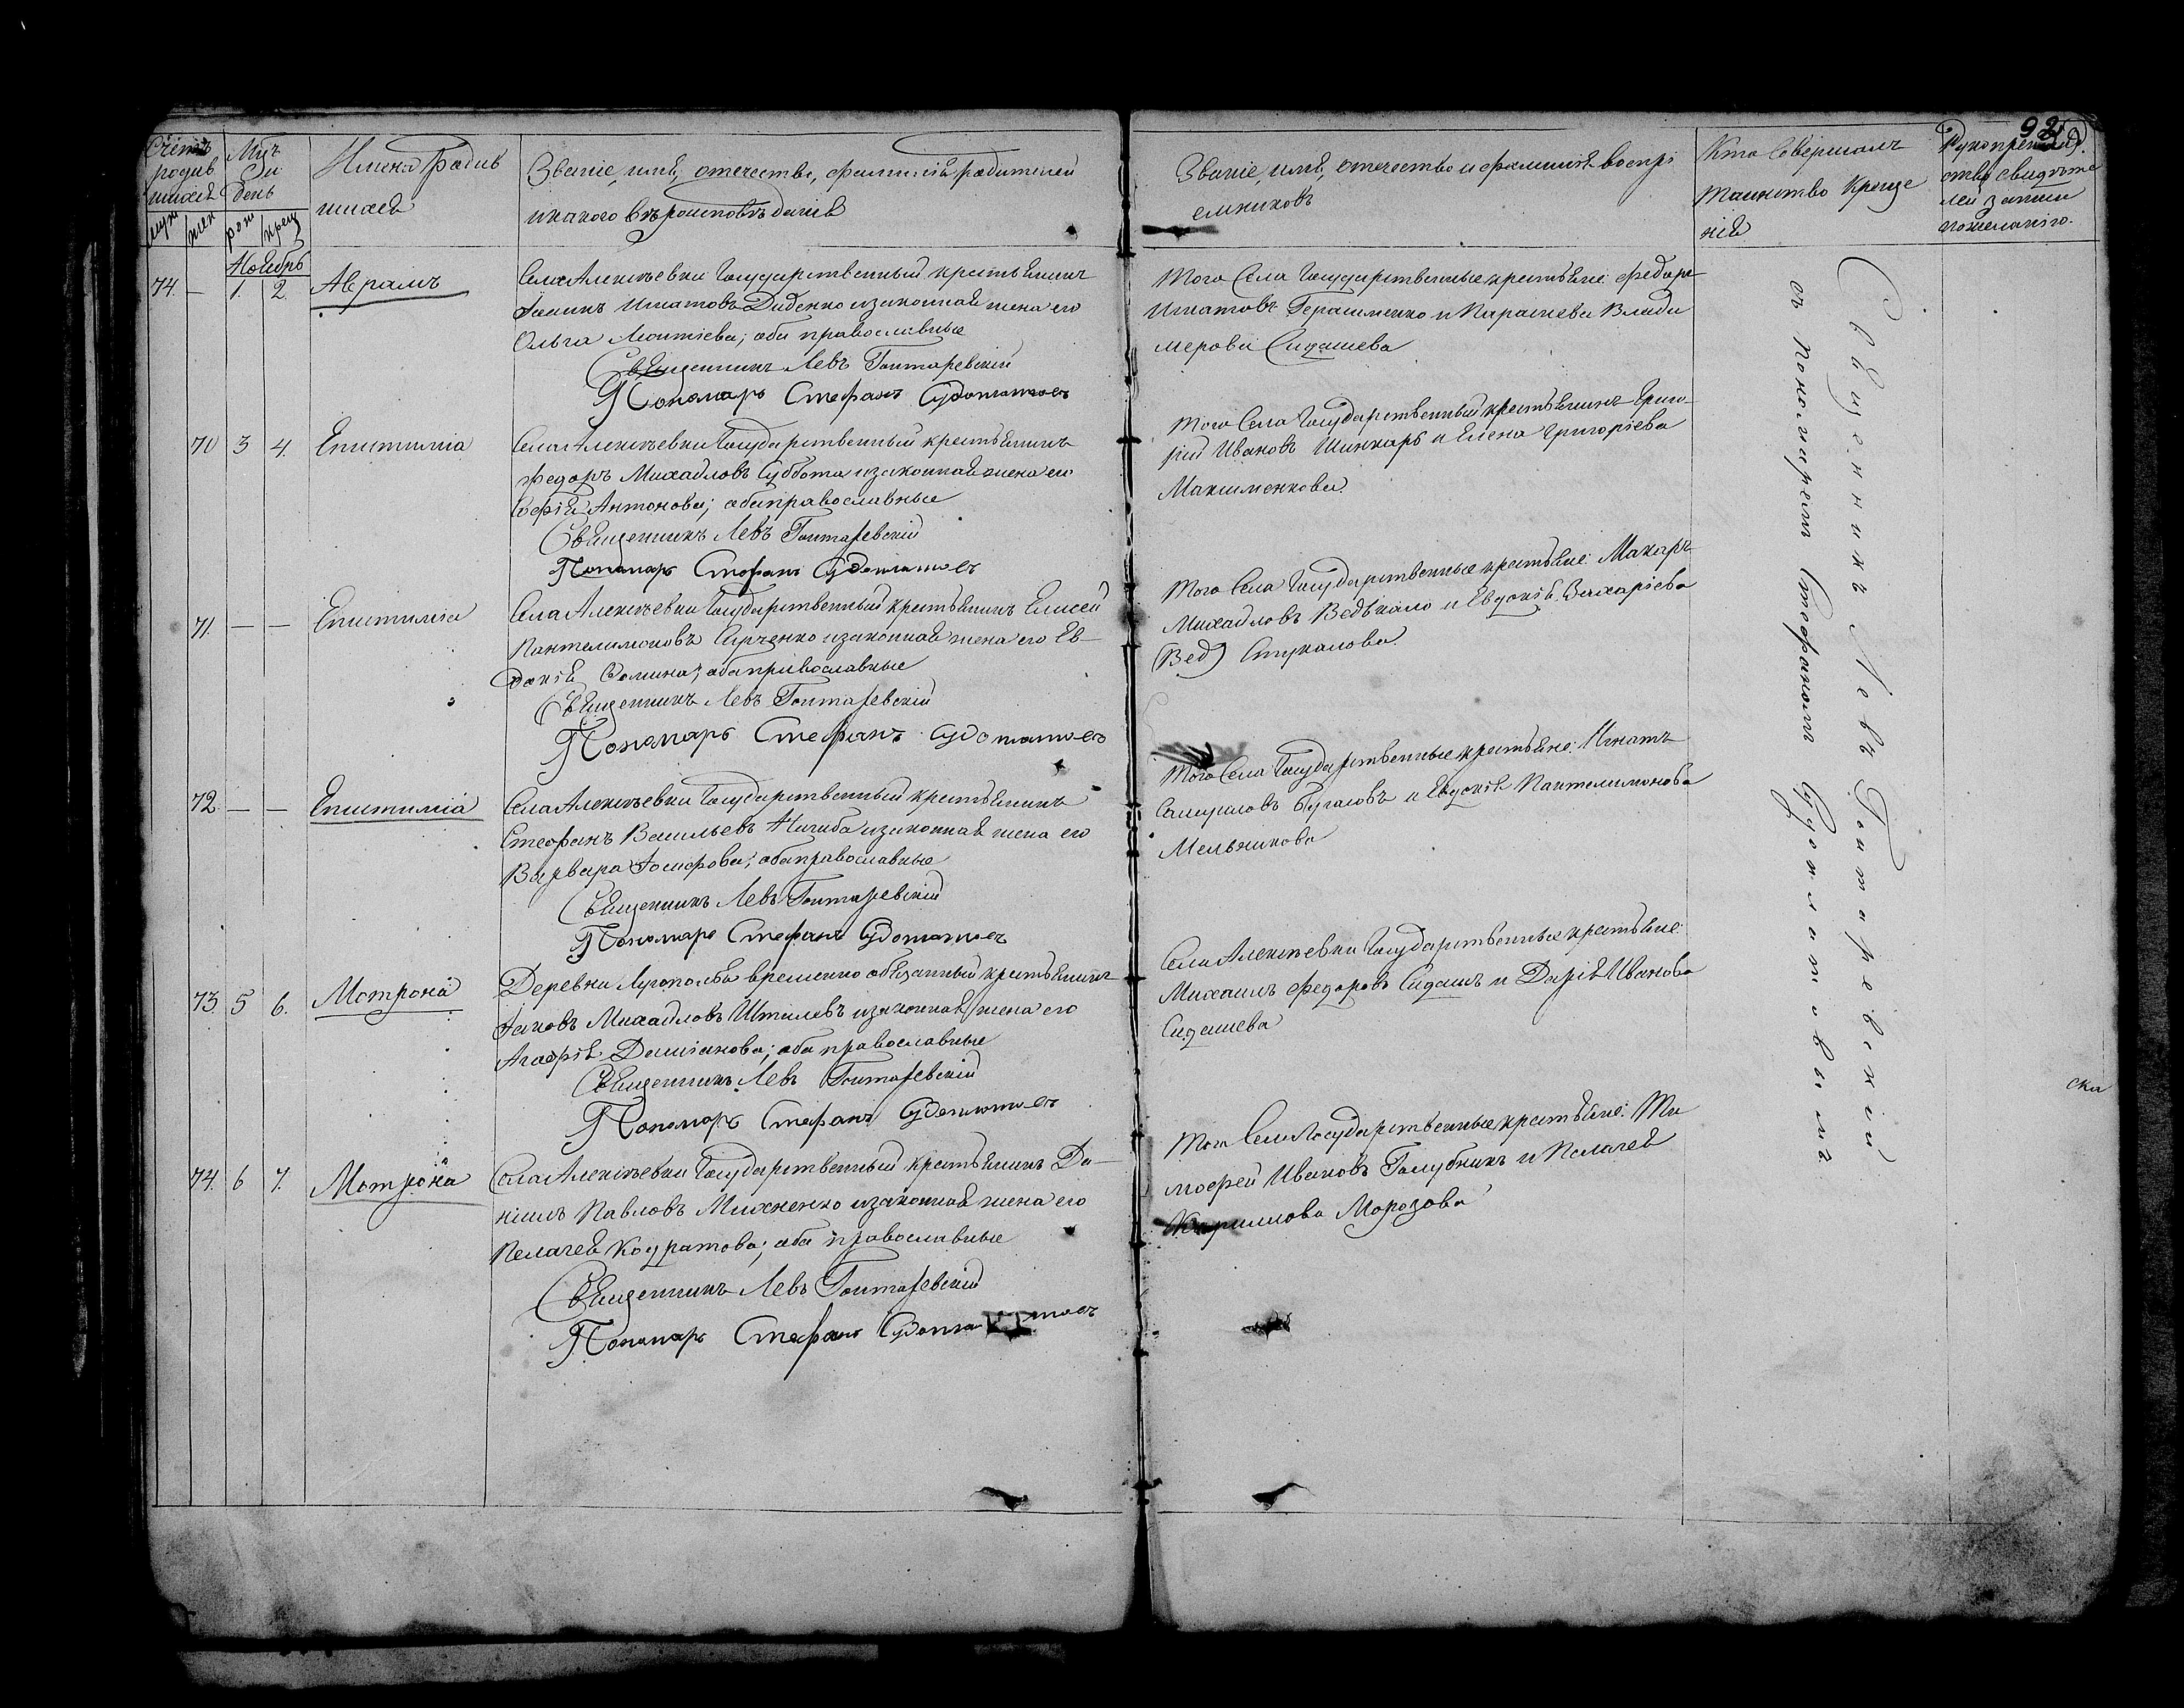 Счетъ родив шихся
муж жен
Мцъ и день
рож крещ
Имена родив
шихся
Званіе, имя, отечество, фамилія родителей
и какого вѣроисповѣданія
Званіе, имя, отечество и фамилія воспрі
емниковъ
Кто совершалъ
таинство креще
нія
Рукоприклад
ство свидѣте
лей записи
по желанію.
92
Ноябрь
74. — 1. 2. Аврамъ
Села Алексѣевки Государственный крестьянинъ
Іоаннъ Игнатовъ Диденко и законная жена его
Ольга Леонтіева; оба православные
Священникъ Левъ Гонтаревскій
Пономарь Стефанъ
Того Села Государственные крестьяне: Федоръ
Игнатовъ Герасименко и Параскева Влади
мерова Сидашева
70 3 4. Епистимія
Села Алексѣевки Государственный крестьянинъ
Федоръ Михайловъ Суббота и законная жена его
Софія Антонова; оба православные
Священникъ Левъ Гонтаревскій
Пономарь Стефанъ
Того Села Государственный крестьянинъ Григо
рій Ивановъ Шинкарь и Елена Григоріева
Максименкова.
71. — — Епистимія
Села Алексѣевки Государственный крестьянинъ Елисей
Пантелимоновъ Сирченко и законная жена его Ев—
докія Фомина; оба православные
Священникъ Левъ Гонтаревскій
Пономарь Стефанъ
Того Села Государственные крестьяне: Макаръ
Михайловъ Ведькало и Евдокія Захаріева
(Вед) Стукалова.
72 — — Епистимія
Села Алексѣевки Государственный крестьянинъ
Стефанъ Васильевъ Чигиба и законная жена его
Варвара Іосифова; оба православные
Священникъ Левъ Гонтаревскій
Пономарь Стефанъ
Того Села Государственные крестьяне: Игнатъ
Бугаговъ и Евдокія Пантелимонова
Мельникова
73. 5 6. Мотрона
Деревни Луполья временно обязанный крестьянинъ
Іаковъ Михайловъ и законная жена его
Агафія Даміанова; оба православные
Священникъ Левъ Гонтаревскій
Пономарь Стефанъ
Села Алексѣевки Государственные крестьяне:
Михаилъ Федоровъ Сидашъ и Дарія Иванова
Сидашева
74. 6 7. Мотрона
Села Алексѣевки Государственный крестьянинъ Да—
ніилъ Павловъ Михненко и законная жена его
Пелагея Кодратова; оба православные
Священникъ Левъ Гонтаревскій
Пономарь Стефанъ
Того Села Государственные крестьяне: Ти
мофей Ивановъ Голубникъ и Пелагея
Кирилова Морозова
Священникъ Левъ Гонтаревскій
съ Пономаремъ Стефаномъ
ска